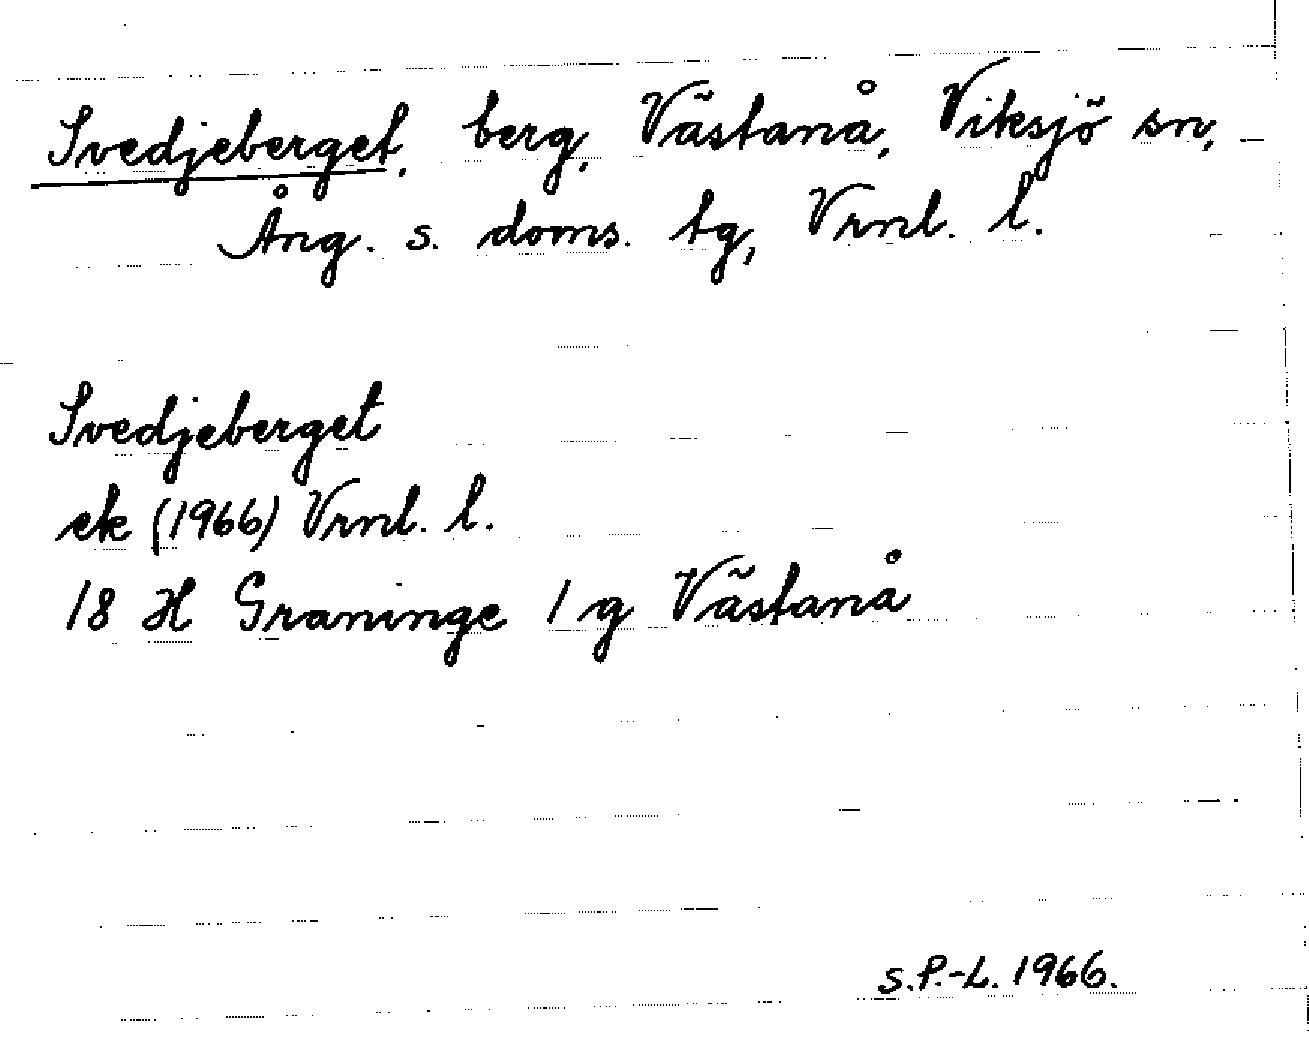 Svedjeberget, berg, Västanå, Viksjö sn,
Ång. s. doms. tg, Vrnl. l.
Svedjeberget
ek (1966) Vrnl. l.
18 H Graninge 1 g Västanå
S.P.-L. 1966.